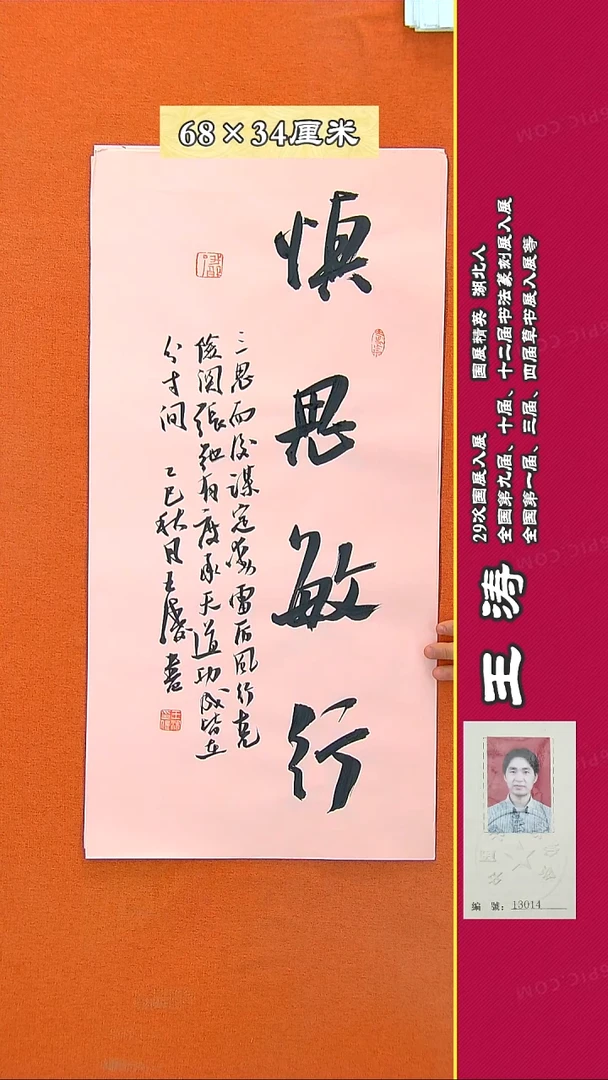 68×34厘米
慎思敏行
三思而后谋定动雷厉风行克
险关张弛有度承天道功成皆在
分寸间 乙巳秋月王涛书
王涛
29次国展入展 国展精英 湖北人
全国第九届、十届、十二届书法篆刻展入展
全国第一届、三届、四届草书展入展等
编 號：13014